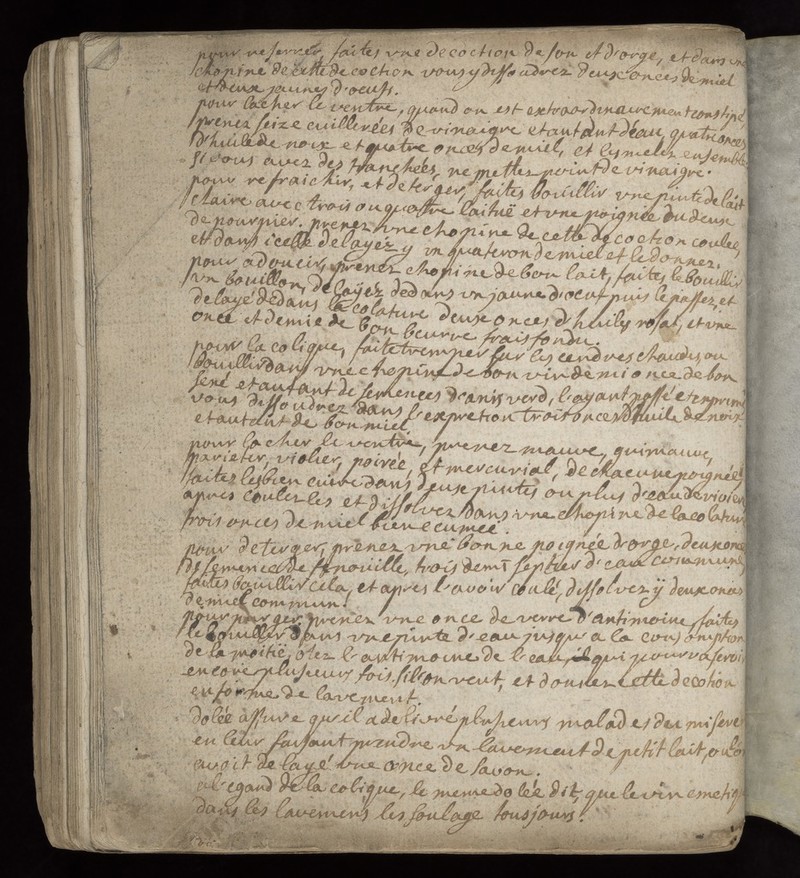 pour reserrer, faites une decoction de son et d'orge, et dans une
chopine de cette decoction vous y dissoudrez deux onces de miel
et deux jaunes d'oeufs.
pour lacher le ventre, quand on est extraordinairement constipé,
prenez seize cuillerées de vinaigre et autant d'eau, quatre onces
d'huile de noix et quatre onces de miel, et les melez ensemble
si vous avez des tranchées, ne mettez point de vinaigre.
pour refraichir, et deterger, faites bouillir une pinte de lait
claire avec trois ou quatre laituë et une poignée du deux
de pourpier. prenez une chopine de cette decoction coulée,
et dans icelle delayez y un quateron de miel et le donnez.
pour adoucir, prenez chopine de bon lait, faites le bouillir
un bouillon, delayez dedans un jaune d'oeuf puis le passez, et
delayé dedans la colature deux onces d'huiles rosat, et une
once et demie de bon beurre frais fondu.
pour la colique, faite tremper sur les cendres chaudes ou
bouillir dans une chopine de bon vin demi once de bon
sené et autant de semences d'anis verd, l'ayant passé et exprimé
vous dissoudrez dans l'expretion trois onces d'huile de noix
et autant de bon miel.
pour lacher le ventre, prenez mauve, guimauve,
parieter, violier, poirée, et mercurial, de chacune poignée,
faitez les bien cuire dans deux pintes ou plus d'eau de riviere
apres coulez les et dissolvez dans une chopine de la colature
trois onces de miel bien ecumée.
pour deterger, prenez une bonne poignée d'orge, deux onces
de semences de fenouille, trois demi septier d'eau commune,
faites bouillir cela, et apres l'avoir coulé, dissolvez y deux onces
de miel commun.
pour purger, prenez une once de verre d'antimoine, faites
le bouillir dans une pinte d'eau jusqu'a la consomption
de la moitié, otez l'antimoine de l'eau, qui pourra servir
encore plusieurs fois si l'on veut, et donnez cette decotion
en forme de lavement.
dolée assure qu'il a delivré plusieurs malades du miserere
en leur faisant prendre un lavement de petit lait, ou l'on
avoit delayé une once de savon.
a l'egard de la colique, le meme dolée dit, que le vin emetique
dans les lavemens les soulage tousjours.